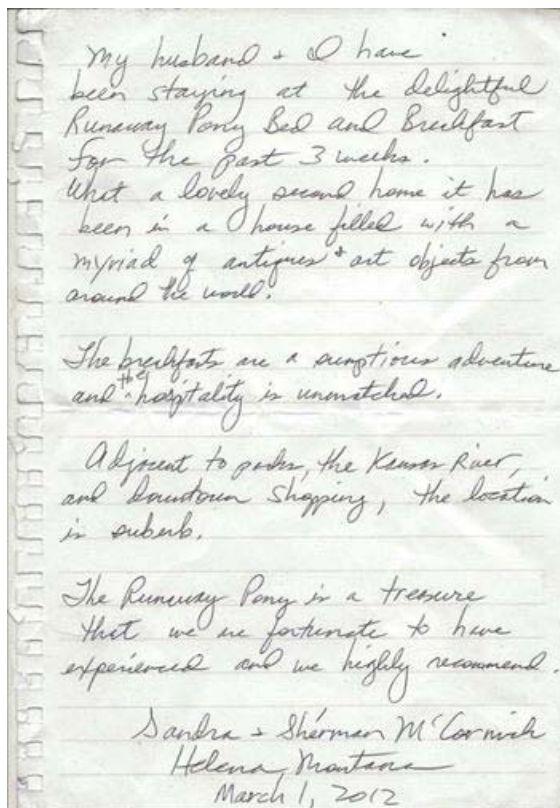 My husband + I have
been staying at the delightful
Runaway Pony Bed and Breakfast
for the past 3 weeks.
What a lovely second home it has
been in a house filled with a
myriad of antiques + art objects from
around the world.
The breakfasts are a sumptious adventure
and the hospitality is unmatched.
Adjacent to parks, the Kansas River,
and downtown shopping, the location
is suberb.
The Runaway Pony is a treasure
that we are fortunate to have
experienced and we highly recommend.
Sandra + Sherman McCormick
Helena, Montana
March 1, 2012